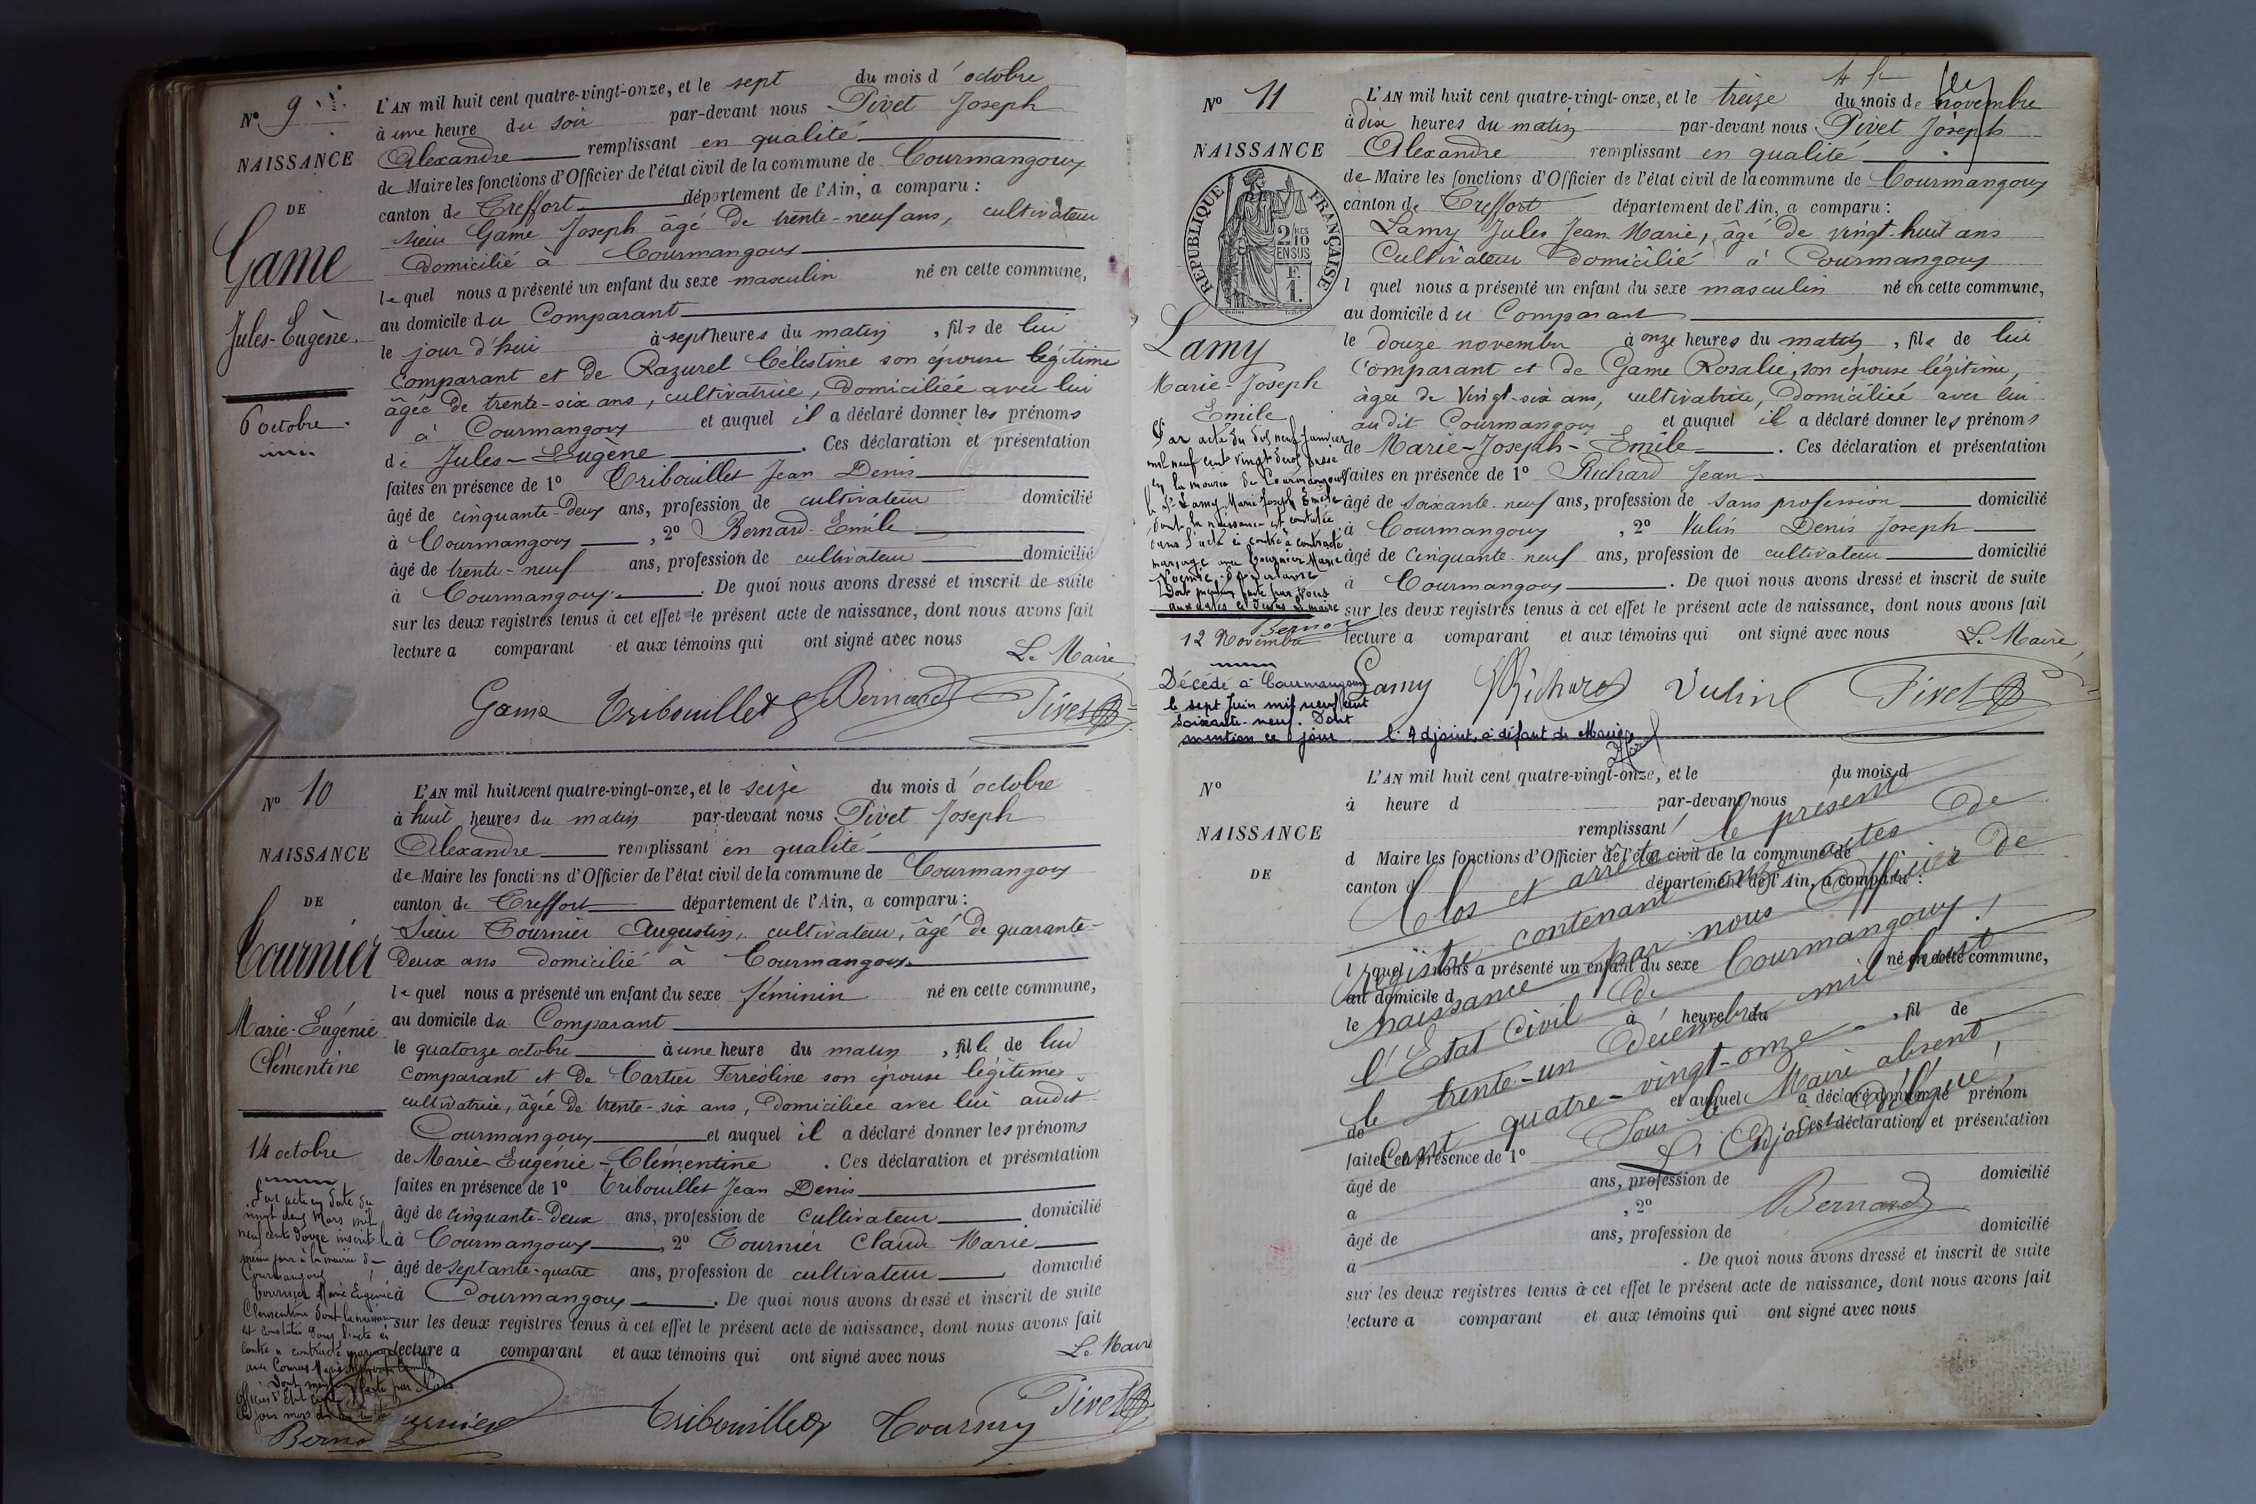 Nº 9
NAISSANCE
DE
Game
Jules-Eugène.
6 octobre.
L'AN mil huit cent quatre-vingt-onze, et le sept du mois d'octobre
à une heure du soir par-devant nous Pivet Joseph
Alexandre remplissant en qualité
de Maire les fonctions d'Officier de l'état civil de la commune de Courmangoux
canton de Treffort département de l'Ain, a comparu :
sieur Game Joseph âgé de trente-neuf ans, cultivateur
domicilié à Courmangoux
lequel nous a présenté un enfant du sexe masculin né en cette commune,
au domicile du Comparant
le jour d'hui à sept heures du matin, fils de lui
comparant et de Razurel Célestine son épouse légitime
âgée de trente-six ans, cultivatrice, domiciliée avec lui
à Courmangoux et auquel il a déclaré donner les prénoms
de Jules-Eugène. Ces déclaration et présentation
faites en présence de 1º Tribouillet Jean Denis
âgé de cinquante-deux ans, profession de cultivateur domicilié
à Courmangoux, 2º Bernard Emile
âgé de trente-neuf ans, profession de cultivateur domicilié
à Courmangoux. De quoi nous avons dressé et inscrit de suite
sur les deux registres tenus à cet effet le présent acte de naissance, dont nous avons fait
lecture a comparant et aux témoins qui ont signé avec nous
Le Maire
Game Tribouillet E Bernard Pivet
Nº 10
NAISSANCE
DE
Tournier
Marie-Eugénie
Clémentine
14 octobre
L'AN mil huit cent quatre-vingt-onze, et le seize du mois d'octobre
à huit heures du matin par-devant nous Pivet Joseph
Alexandre remplissant en qualité
de Maire les fonctions d'Officier de l'état civil de la commune de Courmangoux
canton de Treffort département de l'Ain, a comparu :
Sieur Tournier Augustin, cultivateur, âgé de quarante-
deux ans domicilié à Courmangoux
lequel nous a présenté un enfant du sexe féminin né en cette commune,
au domicile du Comparant
le quatorze octobre à une heure du matin, fille de lui
comparant et de Cartier Ferréoline son épouse légitime
cultivatrice, âgée de trente-six ans, domiciliée avec lui audit
Courmangoux et auquel il a déclaré donner les prénoms
de Marie-Eugénie-Clémentine. Ces déclaration et présentation
faites en présence de 1º Tribouillet Jean Denis
âgé de cinquante-deux ans, profession de cultivateur domicilié
à Courmangoux, 2º Tournier Claude Marie
âgé de septante-quatre ans, profession de cultivateur domicilié
à Courmangoux. De quoi nous avons dressé et inscrit de suite
sur les deux registres tenus à cet effet le présent acte de naissance, dont nous avons fait
lecture a comparant et aux témoins qui ont signé avec nous
Le Maire
Par acte en date du
vingt deux Mars mil
neuf cent douze inscrit le
même jour à la mairie de
Courmangoux
Tournier Marie Eugénie
Clémentine dont la naissance
est constatée dans l'acte ci
contre a contracté mariage
avec
dont mention faite par Nous
Officier d'Etat Civil
Tribouillet Tournier Pivet
Nº 11
NAISSANCE
RÉPUBLIQUE FRANÇAISE
2/10 EN SUS
F. 1.
Lamy
Marie-Joseph
Emile
Par acte du dix neuf Janvier
mil neuf cent vingt deux passé
en la mairie de Courmangoux
le Sr Lamy Marie Joseph Emile
dont la naissance est constatée
dans l'acte ci contre a contracté
mariage avec Tournier Marie
Dont mention faite par Nous
12 Novembre
Décédé à Courmangoux
le sept Juin mil neuf cent
soixante-neuf. Dont
mention ce jour l'Adjoint, à défaut du Maire
L'AN mil huit cent quatre-vingt-onze, et le treize du mois de novembre
à dix heures du matin par-devant nous Pivet Joseph
Alexandre remplissant en qualité
de Maire les fonctions d'Officier de l'état civil de la commune de Courmangoux
canton de Treffort département de l'Ain, a comparu :
Lamy Jules Jean Marie, âgé de vingt-huit ans
Cultivateur domicilié à Courmangoux
l quel nous a présenté un enfant du sexe masculin né en cette commune,
au domicile du Comparant
le douze novembre à onze heures du matin, fils de lui
Comparant et de Game Rosalie, son épouse légitime,
âgée de vingt-six ans, cultivatrice, domiciliée avec lui
audit Courmangoux et auquel il a déclaré donner les prénoms
de Marie-Joseph-Emile. Ces déclaration et présentation
faites en présence de 1º Richard Jean
âgé de soixante-neuf ans, profession de sans profession domicilié
à Courmangoux, 2º Vulin Denis Joseph
âgé de cinquante-neuf ans, profession de cultivateur domicilié
à Courmangoux. De quoi nous avons dressé et inscrit de suite
sur les deux registres tenus à cet effet le présent acte de naissance, dont nous avons fait
lecture a comparant et aux témoins qui ont signé avec nous
Le Maire,
Lamy Richard Vulin Pivet
Nº
NAISSANCE
DE
L'AN mil huit cent quatre-vingt-onze, et le du mois d
à heure d par-devant nous
remplissant
d Maire les fonctions d'Officier de l'état civil de la commune de
canton d département de l'Ain, a comparu :
l quel nous a présenté un enfant du sexe né en cette commune,
au domicile d
le à heure du , fil de
et auquel a déclaré donner le prénom
de . Ces déclaration et présentation
faites en présence de 1º
âgé de ans, profession de domicilié
à , 2º
âgé de ans, profession de domicilié
à . De quoi nous avons dressé et inscrit de suite
sur les deux registres tenus à cet effet le présent acte de naissance, dont nous avons fait
lecture a comparant et aux témoins qui ont signé avec nous
Clos et arrêté le présent
registre contenant onze actes de
naissance par nous Officier de
l'Etat Civil de Courmangoux,
le trente-un Décembre mil huit
cent quatre-vingt-onze.
Pour le Maire absent,
L'Adjoint délégué,
Bernard